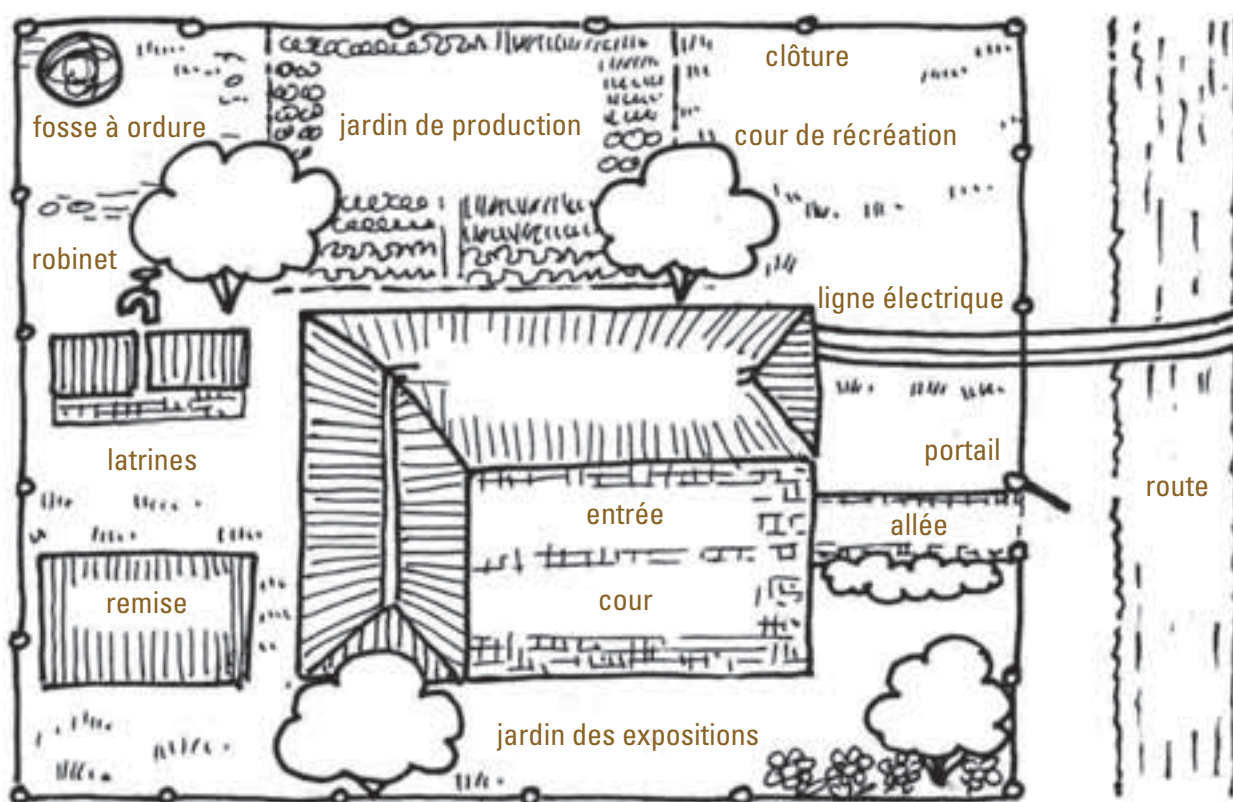 clôture
fosse à ordure
jardin de production
cour de récréation
robinet
ligne électrique
latrines
portail
route
entrée
allée
remise
cour
jardin des expositions